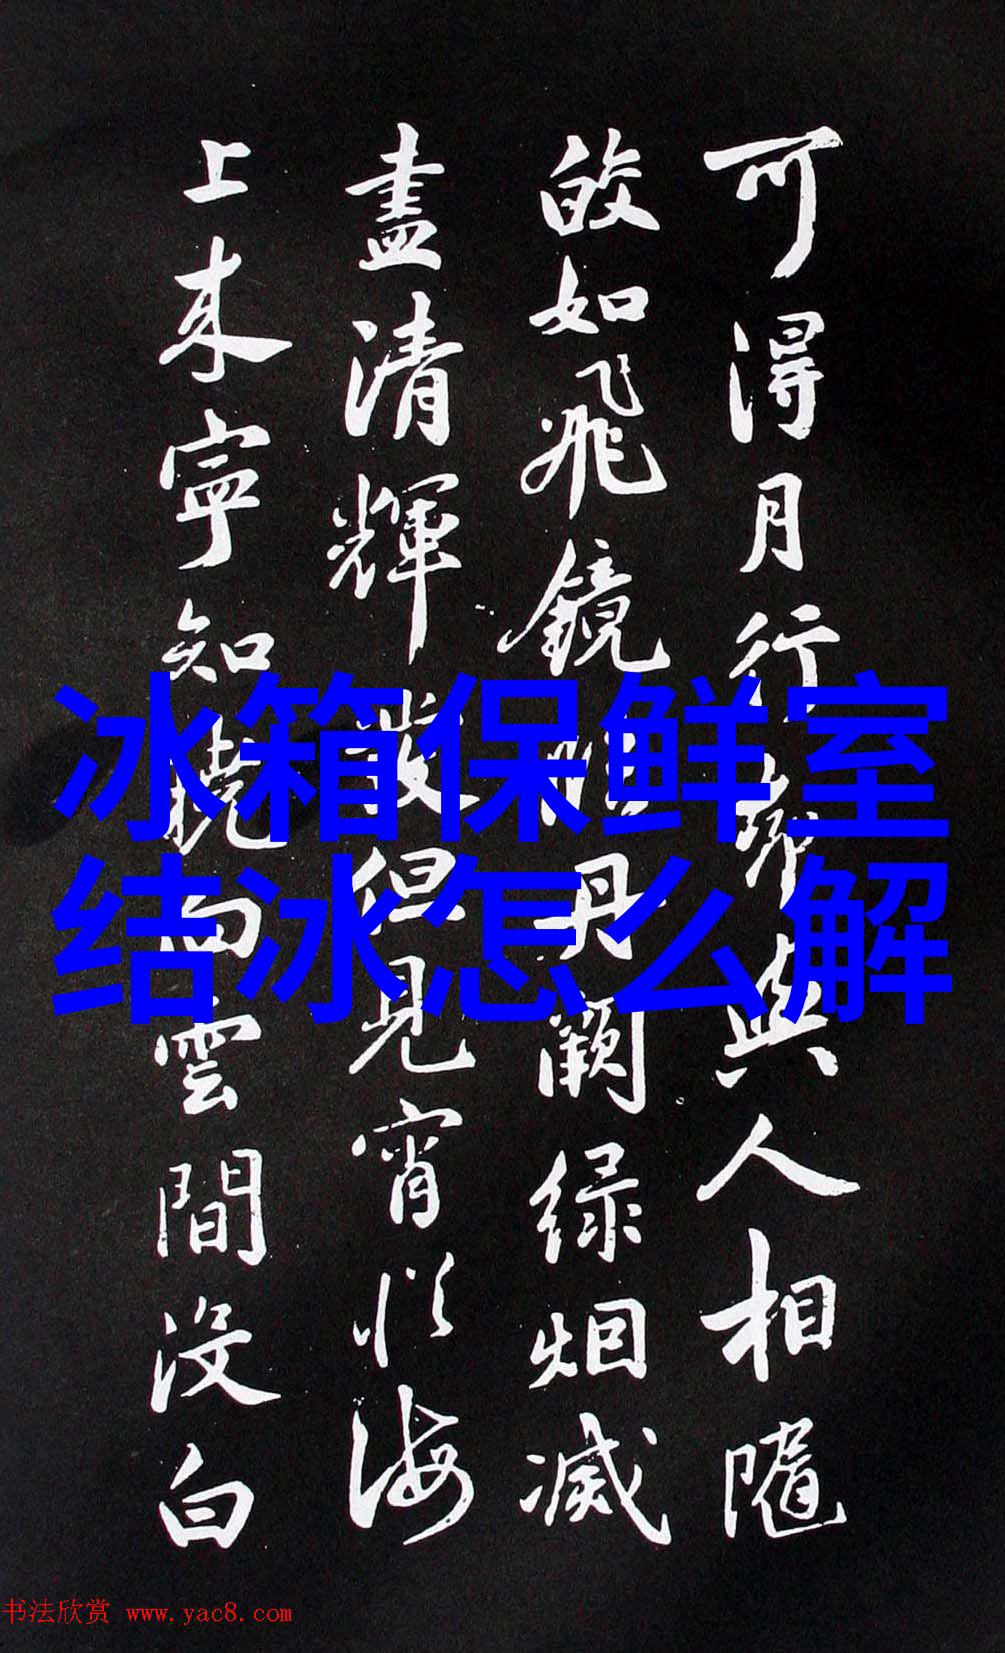 冰箱保鲜室
结冰怎么解
可得月行却與人相隨
皎如飛鏡臨丹闕绿烟滅
盡清輝發但見宵從海
上来寧知曉向雲間没白
书法欣赏 www.yac8.com